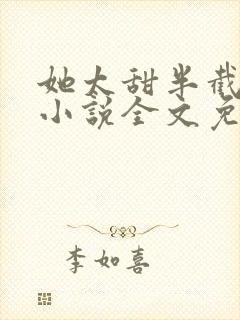 她太甜半截
小說全文免
李如喜